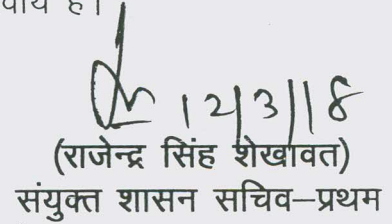 है।
12/3/18
(राजेन्द्र सिंह शेखावत)
संयुक्त शासन सचिव–प्रथम